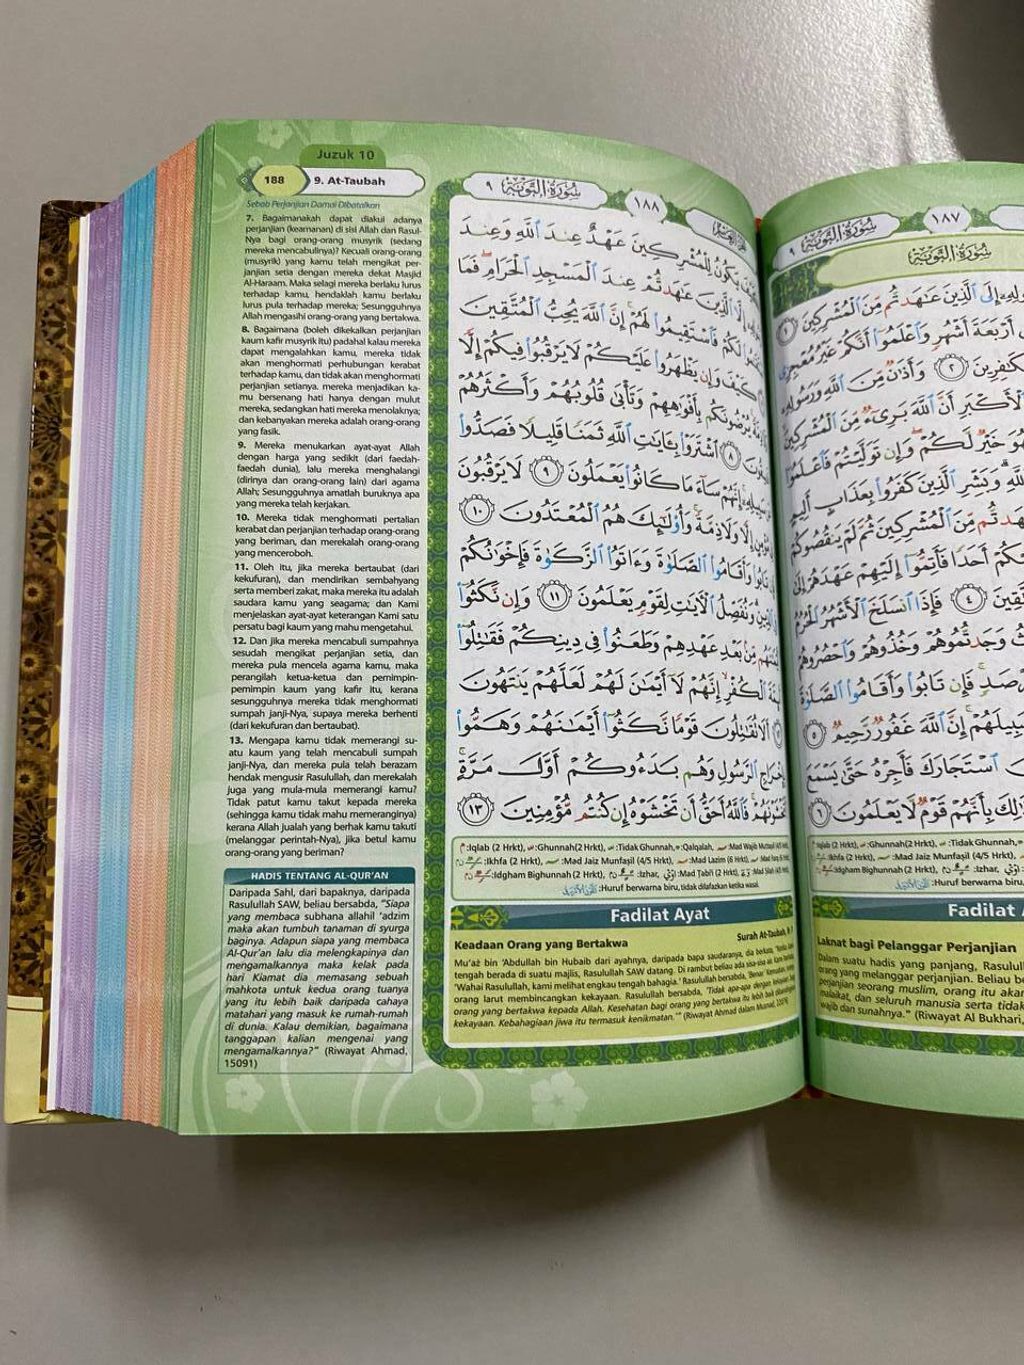 Juzuk 10
188
9. At-Taubah
Sebab Perjanjian Damai Dibatalkan
7. Bagaimanakah dapat diakui adanya
perjanjian (keamanan) di sisi Allah dan Rasul-
Nya bagi orang-orang musyrik (sedang
mereka mencabulinya)? Kecuali orang-orang
(musyrik) yang kamu telah mengikat per-
janjian setia dengan mereka dekat Masjid
Al-Haraam. Maka selagi mereka berlaku lurus
terhadap kamu, hendaklah kamu berlaku
lurus pula terhadap mereka; Sesungguhnya
Allah mengasihi orang-orang yang bertakwa.
8. Bagaimana (boleh dikekalkan perjanjian
kaum kafir musyrik itu) padahal kalau mereka
dapat mengalahkan kamu, mereka tidak
akan menghormati perhubungan kerabat
terhadap kamu, dan tidak akan menghormati
perjanjian setianya. mereka menjadikan ka-
mu bersenang hati hanya dengan mulut
mereka, sedangkan hati mereka menolaknya;
dan kebanyakan mereka adalah orang-orang
yang fasik.
9. Mereka menukarkan ayat-ayat Allah
dengan harga yang sedikit (dari faedah-
faedah dunia), lalu mereka menghalangi
(dirinya dan orang-orang lain) dari agama
Allah; Sesungguhnya amatlah buruknya apa
yang mereka telah kerjakan.
10. Mereka tidak menghormati pertalian
kerabat dan perjanjian terhadap orang-orang
yang beriman, dan merekalah orang-orang
yang menceroboh.
11. Oleh itu, jika mereka bertaubat (dari
kekufuran), dan mendirikan sembahyang
serta memberi zakat, maka mereka itu adalah
saudara kamu yang seagama; dan Kami
menjelaskan ayat-ayat keterangan Kami satu
persatu bagi kaum yang mahu mengetahui.
12. Dan jika mereka mencabuli sumpahnya
sesudah mengikat perjanjian setia, dan
mereka pula mencela agama kamu, maka
perangilah ketua-ketua dan pemimpin-
pemimpin kaum yang kafir itu, kerana
sesungguhnya mereka tidak menghormati
sumpah janji-Nya, supaya mereka berhenti
(dari kekufuran dan bertaubat).
13. Mengapa kamu tidak memerangi su-
atu kaum yang telah mencabuli sumpah
janji-Nya, dan mereka pula telah berazam
hendak mengusir Rasulullah, dan merekalah
juga yang mula-mula memerangi kamu?
Tidak patut kamu takut kepada mereka
(sehingga kamu tidak mahu memeranginya)
kerana Allah jualah yang berhak kamu takuti
(melanggar perintah-Nya), jika betul kamu
orang-orang yang beriman?
HADIS TENTANG AL-QUR'AN
Daripada Sahl, dari bapaknya, daripada
Rasulullah SAW, beliau bersabda, "Siapa
yang membaca subhana allahil 'adzim
maka akan tumbuh tanaman di syurga
baginya. Adapun siapa yang membaca
Al-Qur'an lalu dia melengkapinya dan
mengamalkannya maka kelak pada
hari Kiamat dia memasang sebuah
mahkota untuk kedua orang tuanya
yang itu lebih baik daripada cahaya
matahari yang masuk ke rumah-rumah
di dunia. Kalau demikian, bagaimana
tanggapan kalian mengenai yang
mengamalkannya?" (Riwayat Ahmad,
15091)
سُورَةُ التَّوْبَة ٩
١٨٨
يَكُونُ لِلْمُشْرِكِينَ عَهْدٌ عِندَ اللَّهِ وَعِندَ
إِلَّا الَّذِينَ عَٰهَدتُّمْ عِندَ الْمَسْجِدِ الْحَرَامِ فَمَا
لَكُمْ فَاسْتَقِيمُوا لَهُمْ إِنَّ اللَّهَ يُحِبُّ الْمُتَّقِينَ
كَيْفَ وَإِن يَظْهَرُوا عَلَيْكُمْ لَا يَرْقُبُوا فِيكُمْ إِلًّا
يُرْضُونَكُم بِأَفْوَاهِهِمْ وَتَأْبَىٰ قُلُوبُهُمْ وَأَكْثَرُهُمْ
٨ اشْتَرَوْا بِـَٔايَٰتِ اللَّهِ ثَمَنًا قَلِيلًا فَصَدُّوا
إِنَّهُمْ سَآءَ مَا كَانُوا يَعْمَلُونَ ٩ لَا يَرْقُبُونَ
إِلًّا وَلَا ذِمَّةً وَأُولَٰٓئِكَ هُمُ الْمُعْتَدُونَ ١٠
تَابُوا وَأَقَامُوا الصَّلَوٰةَ وَءَاتَوُا الزَّكَوٰةَ فَإِخْوَٰنُكُمْ
وَنُفَصِّلُ الْءَايَٰتِ لِقَوْمٍ يَعْلَمُونَ ١١ وَإِن نَّكَثُوا
مِّن بَعْدِ عَهْدِهِمْ وَطَعَنُوا فِى دِينِكُمْ فَقَٰتِلُوا
الْكُفْرِ إِنَّهُمْ لَآ أَيْمَٰنَ لَهُمْ لَعَلَّهُمْ يَنتَهُونَ
أَلَا تُقَٰتِلُونَ قَوْمًا نَّكَثُوا أَيْمَٰنَهُمْ وَهَمُّوا
بِإِخْرَاجِ الرَّسُولِ وَهُم بَدَءُوكُمْ أَوَّلَ مَرَّةٍ
فَاللَّهُ أَحَقُّ أَن تَخْشَوْهُ إِن كُنتُم مُّؤْمِنِينَ ١٣
:Iqlab (2 Hrkt), :Ghunnah(2 Hrkt), :Tidak Ghunnah, :Qalqalah, :Mad Wajib
:Ikhfa (2 Hrkt), :Mad Jaiz Munfaşil (4/5 Hrkt), :Mad Lazim (6 Hrkt),
:Idgham Bighunnah (2 Hrkt), :Izhar, :Mad Tabi'i (2 Hrkt),
:Huruf berwarna biru, tidak dilafazkan ketika wasal.
Fadilat Ayat
Surah At-Taubah,
Keadaan Orang yang Bertakwa
Mu'aż bin 'Abdullah bin Hubaib dari ayahnya, daripada bapa saudaranya, dia berkata,
tengah berada di suatu majlis, Rasulullah SAW datang. Di rambut beliau ada sisa-sisa air.
'Wahai Rasulullah, kami melihat engkau tengah bahagia.' Rasulullah bersabda,
orang larut membincangkan kekayaan. Rasulullah bersabda, 'Tidak apa-apa dengan
orang yang bertakwa kepada Allah. Kesehatan bagi orang yang bertakwa itu lebih baik
kekayaan. Kebahagiaan jiwa itu termasuk kenikmatan.'" (Riwayat Ahmad dalam Musnad,
سُورَةُ التَّوْبَة ٩
١٨٧
سُورَةُ التَّوْبَة
إِلَى الَّذِينَ عَٰهَدتُّم مِّنَ الْمُشْرِكِينَ ١
أَرْبَعَةَ أَشْهُرٍ وَاعْلَمُوا أَنَّكُمْ غَيْرُ مُعْجِزِى
٢ وَأَذَٰنٌ مِّنَ اللَّهِ وَرَسُولِهِ
الْأَكْبَرِ أَنَّ اللَّهَ بَرِىٓءٌ مِّنَ الْمُشْرِكِينَ
خَيْرٌ لَّكُمْ وَإِن تَوَلَّيْتُمْ فَاعْلَمُوا
وَبَشِّرِ الَّذِينَ كَفَرُوا بِعَذَابٍ أَلِيمٍ
مِّنَ الْمُشْرِكِينَ ثُمَّ لَمْ يَنقُصُوكُمْ
أَحَدًا فَأَتِمُّوا إِلَيْهِمْ عَهْدَهُمْ إِلَىٰ
٤ فَإِذَا انسَلَخَ الْأَشْهُرُ الْحُرُمُ
وَجَدتُّمُوهُمْ وَخُذُوهُمْ وَاحْصُرُوهُمْ
فَإِن تَابُوا وَأَقَامُوا الصَّلَوٰةَ
سَبِيلَهُمْ إِنَّ اللَّهَ غَفُورٌ رَّحِيمٌ ٥
اسْتَجَارَكَ فَأَجِرْهُ حَتَّىٰ يَسْمَعَ
بِأَنَّهُمْ قَوْمٌ لَّا يَعْلَمُونَ ٦
:Iqlab (2 Hrkt), :Ghunnah(2 Hrkt), :Tidak Ghunnah,
:Ikhfa (2 Hrkt), :Mad Jaiz Munfaşil (4/5 Hrkt),
:Idgham Bighunnah (2 Hrkt), :Izhar,
:Huruf berwarna biru,
Fadilat
Laknat bagi Pelanggar Perjanjian
Dalam suatu hadis yang panjang,
orang yang melanggar perjanjian. Beliau
perjanjian seorang muslim, orang itu akan
malaikat, dan seluruh manusia serta tidak
wajib dan sunahnya." (Riwayat Al Bukhari,